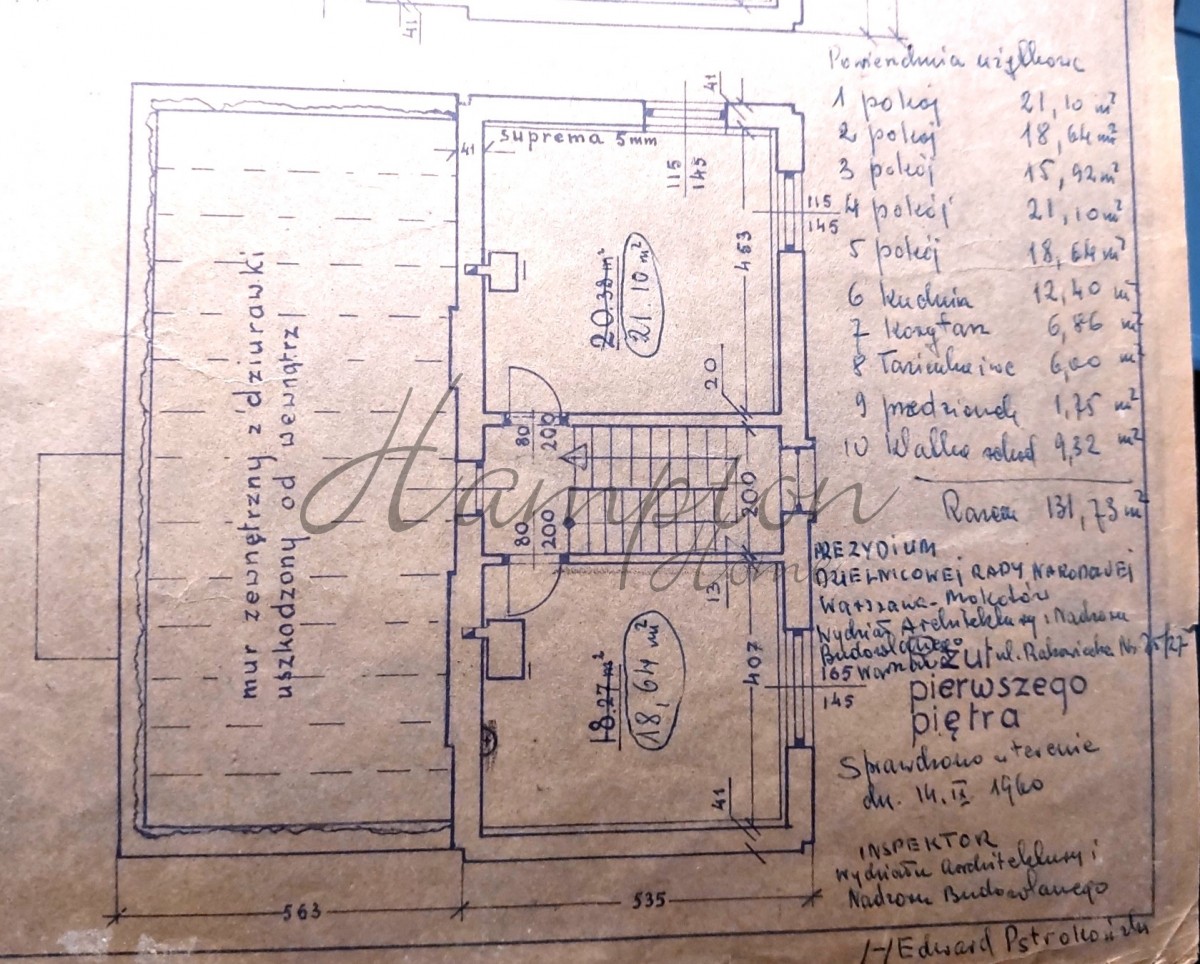 41
Pomieszczenia użytkowe
1 pokój 21,10 m²
2 pokój 18,64 m²
3 pokój 15,92 m²
4 pokój 21,10 m²
5 pokój 18,64 m²
6 Kuchnia 12,40 m²
7 Korytarz 6,86 m²
8 Łazienka i wc 6,00 m²
9 przedsionek 1,75 m²
10 Klatka schod 9,32 m²
Razem 131,73 m²
PREZYDIUM
DZIELNICOWEJ RADY NARODOWEJ
Warszawa-Mokotów
Wydział Architektury i Nadzoru
Budowlanego
Warszawa ul. Rakowiecka Nr 25/27
rzut
pierwszego
piętra
Sprawdzono w terenie
dn. 14.II 1960
INSPEKTOR
Wydziału Architektury i
Nadzoru Budowlanego
/-/ Edward Pstrokoński
mur zewnętrzny z dziurawki
uszkodzony od wewnątrz
suprema 5mm
41
41
115
145
115
145
453
20.38 m²
21.10 m²
20
80
200
200
80
200
13
18.27 m²
18,64 m²
407
165
145
41
563
535
Hampton
Home